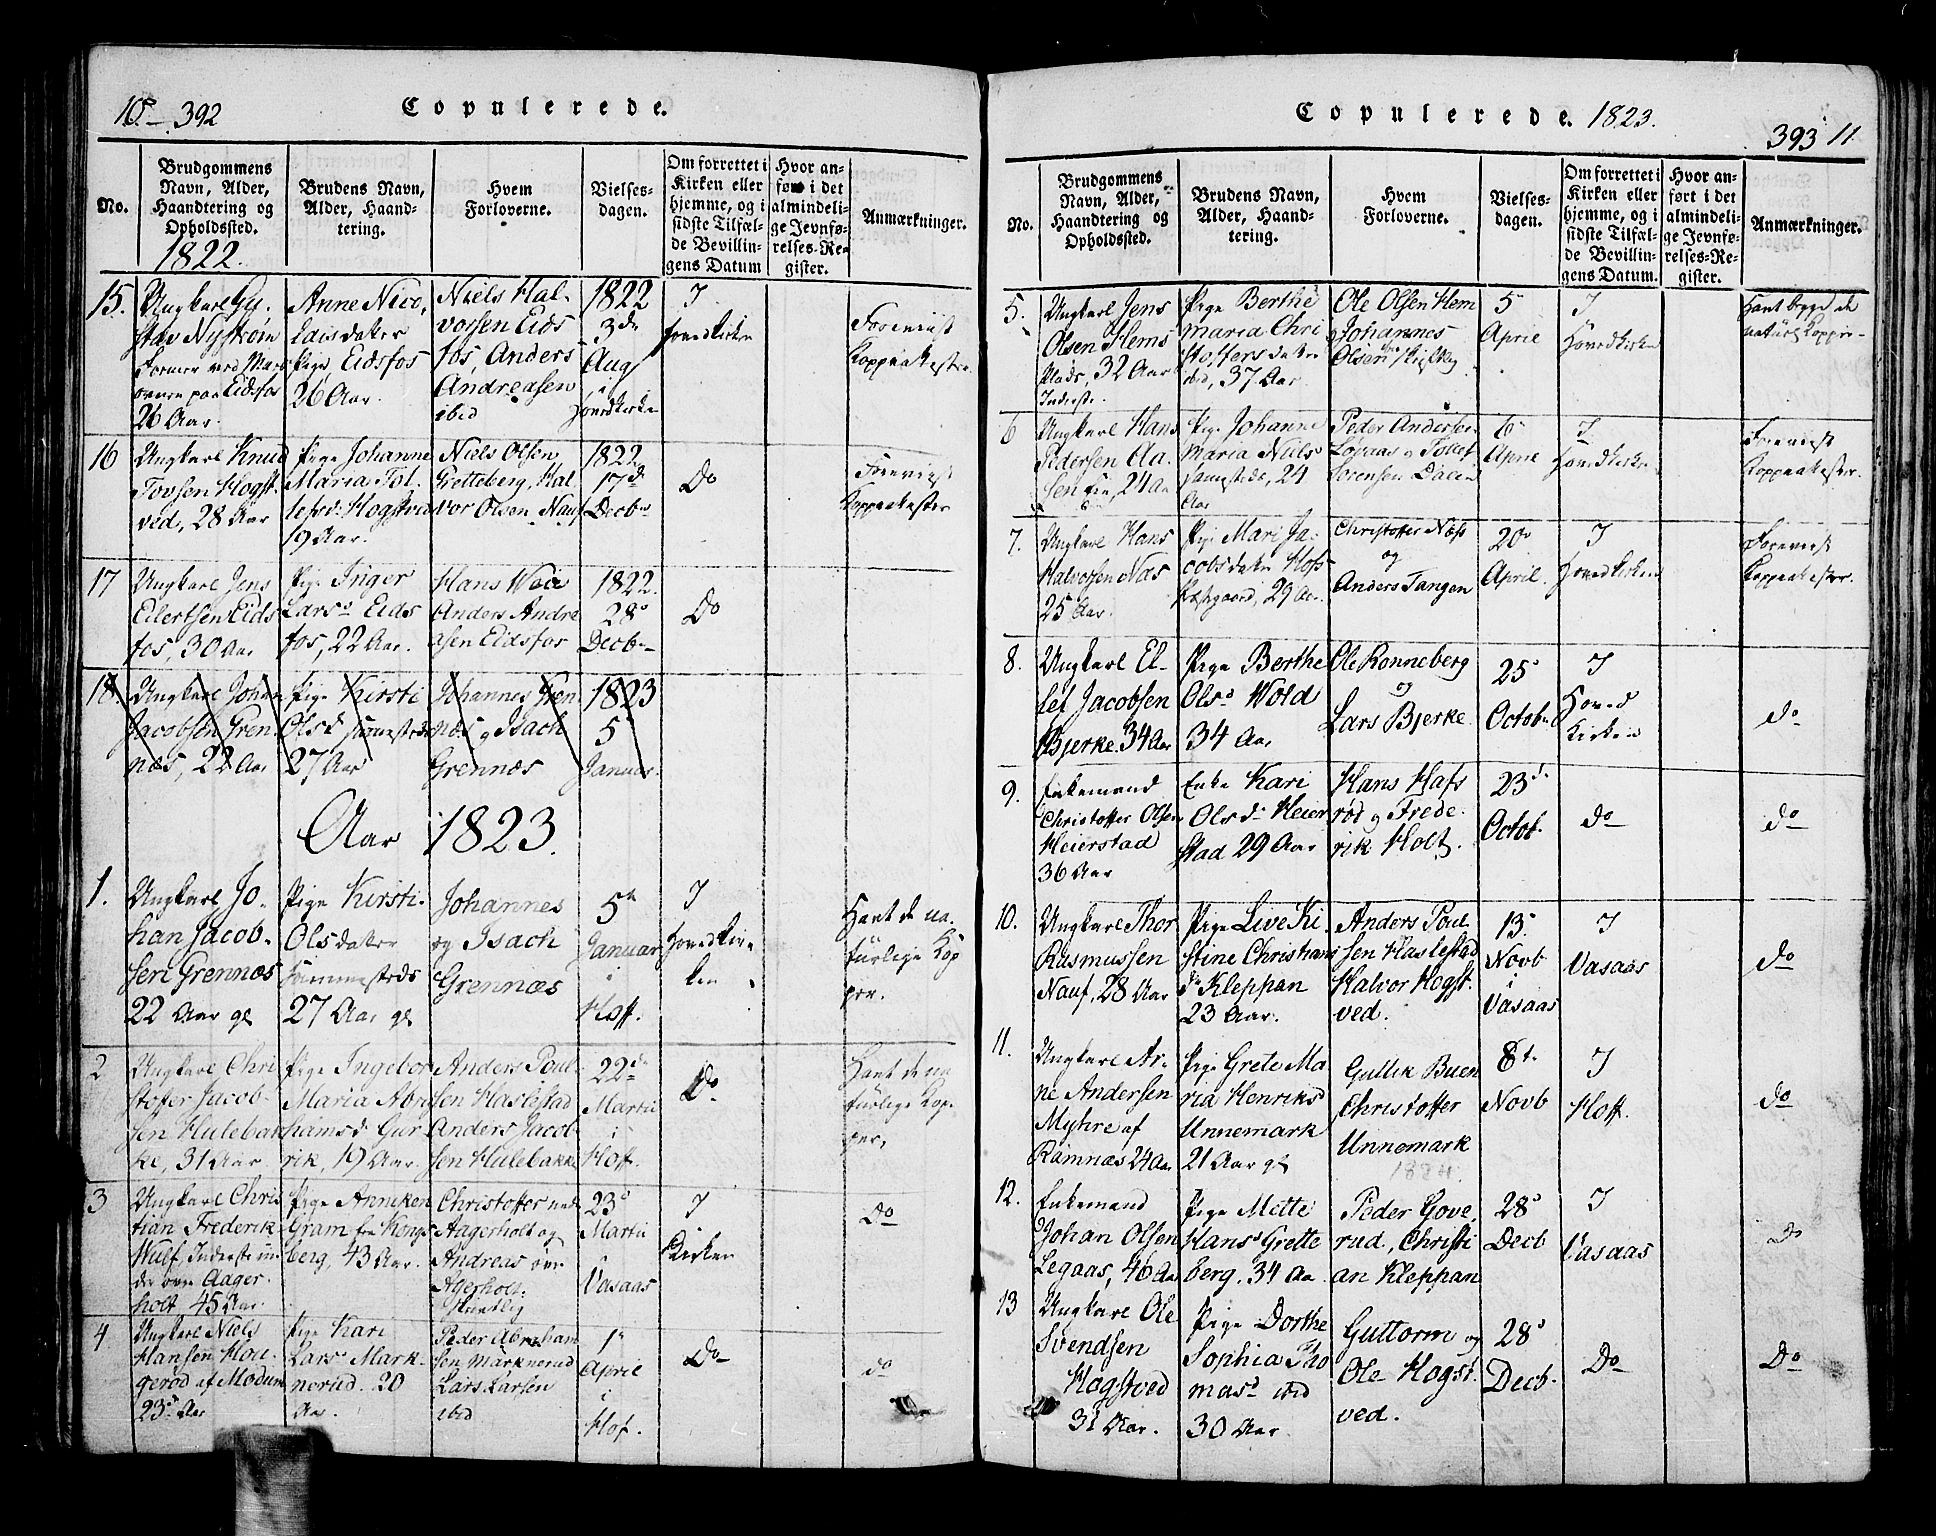 10 392
Copulerede.
No.
Brudgommens Navn, Alder, Haandtering og Opholdssted.
Brudens Navn, Alder, Haandtering.
Hvem Forloverne.
Vielsesdagen.
Om forrettet i Kirken eller hjemme, og i sidste Tilfælde Bevillingens Datum
Hvor anført i det almindelige Jevnførelses-Register.
Anmærkninger.
1822.
15.
Ungkarl Gu-
stav Nystrøm
Former ved Mas-
ovnen paa Eidsfos
26 Aar.
Anne Nico-
laisdatter
Pige, Eidsfos
26 Aar.
Niels Hal-
vorsen Eids
fos, Anders
Andreasen
ibid
1822
3de
Aug
i
Hovedkirke
I
Hovedkirke
Foreviist
Koppeattester
16
Ungkarl Knud
Tovsen Hogst-
ved, 28 Aar
Pige Johanne
Maria Tol-
lefsd: Hogstved
19 Aar.
Niels Olsen
Grotteberg, Hal-
vor Olsen Nauf
1822
17de
Decbr
Do
Foreviist
Koppeattester
17
Ungkarl Jens
Eilertsen Eids
fos, 30 Aar
Pige Inger
Larsd Eids
fos, 22 Aar.
Hans Weie
Anders Andre
asen Eidsfos
1822.
28d
Decbr
Do
18.
Ungkarl Johan
Jacobsen Gren-
næs, 22 Aar
Pige Kirsti
Olsd sammesteds
27 Aar
Johannes Gren-
næs og Isach
Grennæs
1823
5
Januar.
Aar 1823.
1.
Ungkarl Jo-
han Jacob-
sen Grennæs
22 Aar gl
Pige Kirsti
Olsdatter
sammesteds
27 Aar gl
Johannes
og Isach
Grennæs
5te
Januar
i
Hoff.
I
Hovedkir-
ken
Havt de na-
turlige Kop
per.
2
Ungkarl Chri
stoffer Jacob-
sen Hulebak
ke, 31 Aar.
Pige Ingebor
Maria Abra
hamsd Gur
rik, 19 Aar.
Anders Poul-
sen Haslestad
Anders Jacob-
sen Hulebakke
22de
Martii
i
Hoff.
Do
Havt de na
turlige Kop-
per,
3
Ungkarl Chris
tian Frederik
Wulf, Inderste un
der øvre Aager-
holt, 45 Aar.
Pige Anniken
Gram fra Kongs
berg, 43 Aar.
Christoffer ned
Aagerholt og
Andreas øvr
Agerholt.
23d
Martii
i
Vasaas
I
Kirken
Do
4
Ungkarl Niels
Hansen Hou-
gerød af Modum
23 Aar
Pige Kari
Larsd Mark-
nerud. 20
Aar.
Peder Abraham
sen Marknerud
Lars Larsen
ibid
1
Aprill
i
Hof.
Do
do
Copulerede. 1823.
393 11
No.
Brudgommens Navn, Alder, Haandtering og Opholdssted.
Brudens Navn, Alder, Haandtering.
Hvem Forloverne.
Vielsesdagen.
Om forrettet i Kirken eller hjemme, og i sidste Tilfælde Bevillingens Datum.
Hvor anført i det almindelige Jevnførelses-Register.
Anmærkninger.
5.
Ungkarl Jens
Olsen Hems
Plads, 32 Aar
Inderste.
Pige Berthe
Maria Chri
stoffersdatter
ibid, 37 Aar.
Ole Olsen Hem
Johannes
Olsen
5
April
I
Hovedkirken
Havt begge de
naturl Kopper
6
Ungkarl Hans
Pedersen Aa-
sen, 24 Aa
Pige Johanne
Maria Niels
sammesteds, 24
Aar
Peder Andersen
Løvaas og Tollef
Sørensen Dalen
6
April
I
Hovedkirken
Foreviist
Koppeattester.
7.
Ungkarl Hans
Halvorsen Næs
25 Aar.
Pige Mari Ja-
cobsdatter Hofs
Præstgaard, 29 Aar.
Christoffer Næss
og
Anders Tangen
20
April.
I
Hovedkirken
Foreviist
Koppeattester.
8.
Ungkarl El-
lef Jacobsen
Bjerke. 34 Aar
Pige Berthe
Olsd Wold
34 Aar
Ole Ronneberg
og
Lars Bjerke.
25d
Octobr
I
Hoved
Kirken
do
9.
Enkemand
Christoffer Olsen
Heierstad
36 Aar
Enke Kari
Olsdr Heier
stad 29 Aar
Hans Hafs
rød og Frede-
rik Holt.
23d
Octob.
do
do
10.
Ungkarl Thor
Rasmussen
Nauf, 28 Aar
Pige Live Ki
stine Christians
dr Kleppan
23 Aar.
Anders Poul
sen Haslestad
Halvor Hogst-
ved.
13
Novb
i
Vasaas
I
Vasaas
do
11.
Ungkarl Ar-
ne Andersen
Myhre af
Ramnæs 24 Aa
Pige Grete Ma
ria Henriksd
Unnemark
21 Aar gl
Gullik Buen
Christoffer
Unnemark
1824.
8de
Novb
I
Hoff.
do
12.
Enkemand
Johan Olsen
Legaas, 46 Aa
Pige Mette
Hansd Grette
berg. 34 Aa
Peder Gove-
rud, Christi
an Kleppan
28d
Decb
I
Vasaas
Do
13
Ungkarl Ole
Svendsen
Hogstved
31 Aar.
Pige Dorthe
Sophia Tho
masd ibid
30 Aar
Guttorm og
Ole Hogst-
ved.
28d
Decb.
Do
Do